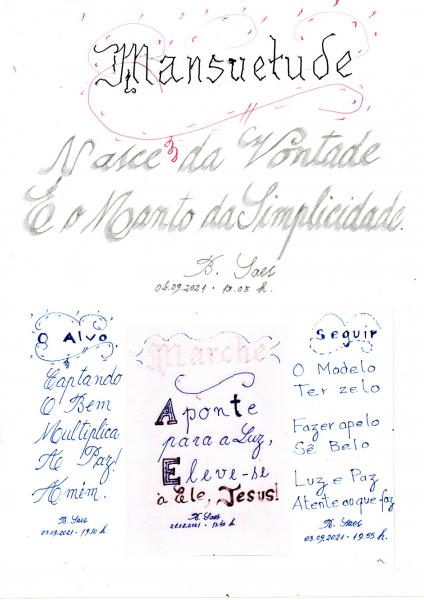 Mansuetude
Nasce da Vontade
É o Manto da Simplicidade.
B. Saes
04.09.2021 · 13.05 h.
O Alvo
Captando
O Bem
Multiplica
A Paz!
Amém.
B. Saes
03.09.2021 · 19.10 h.
Marche
Aponte
para a Luz,
Eleve-se
a Ele, Jesus!
B. Saes
Seguir
O Modelo
Ter zelo
Fazer apelo
Sê Belo
Luz e Paz
Atente ao que faz
B. Saes
03.09.2021 · 19.55 h.